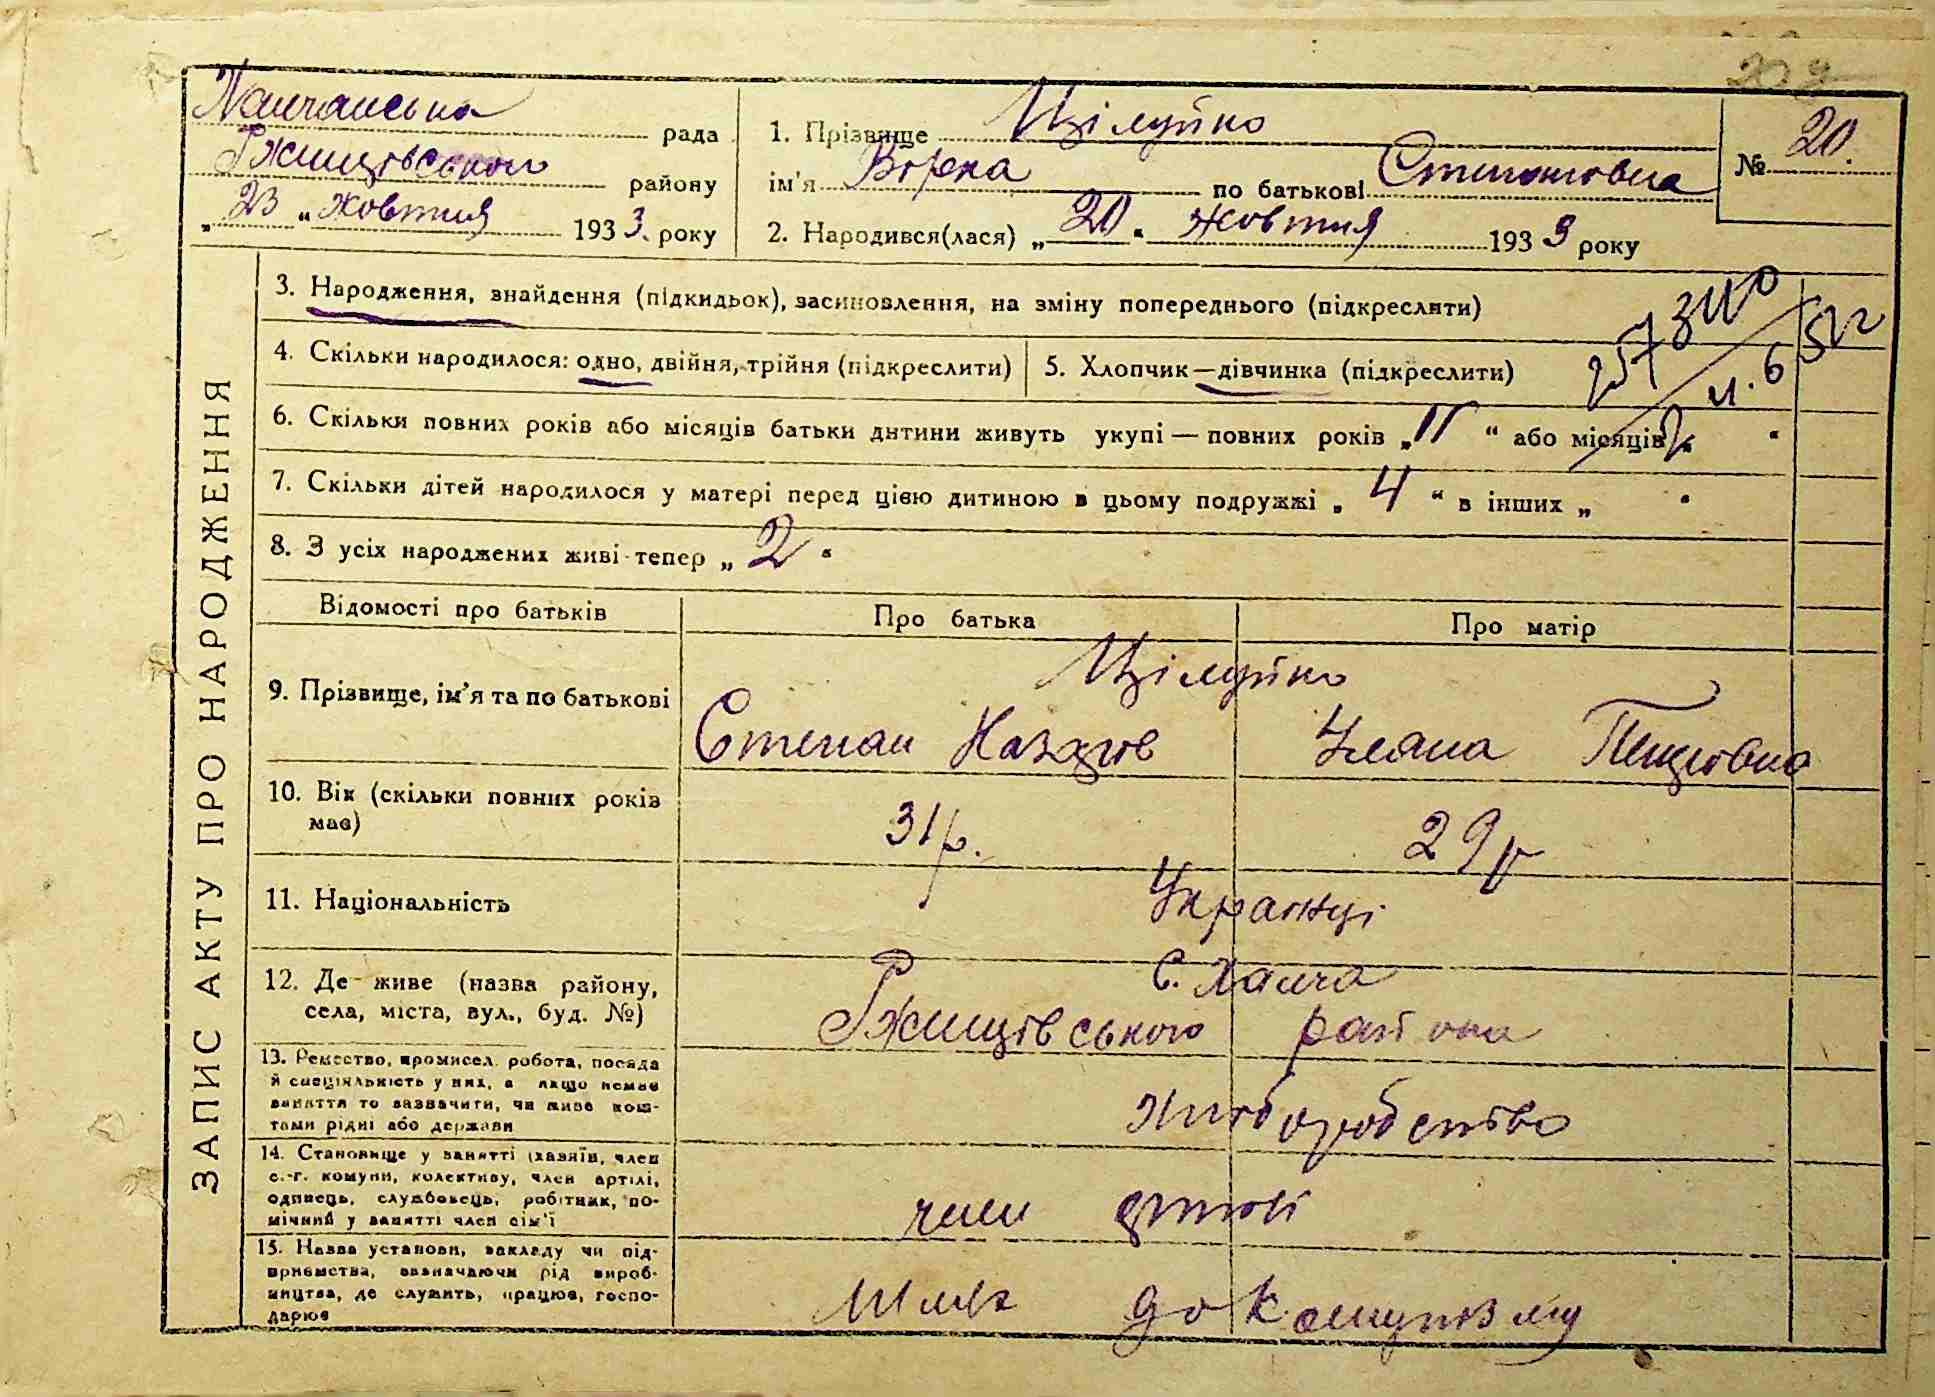 Халчанська рада
Ржищівського району
„23“ жовтня 1933. року
1. Прізвище Цілуйко
ім'я Ворка по батькові Степановна
№ 20.
2. Народився(лася) „20“ жовтня 1933 року
ЗАПИС АКТУ ПРО НАРОДЖЕННЯ
3. Народження, знайдення (підкидьок), засиновлення, на зміну попереднього (підкреслити)
4. Скільки народилося: одно, двійня, трійня (підкреслити)
5. Хлопчик—дівчинка (підкреслити)
6. Скільки повних років або місяців батьки дитини живуть укупі — повних років „11“ або місяців „ “
7. Скільки дітей народилося у матері перед цією дитиною в цьому подружжі „4“ в інших „ “
8. З усіх народжених живі тепер „2“
Відомості про батьків Про батька Про матір
9. Прізвище, ім'я та по батькові
Цілуйко
Степан Назаров Уляна
10. Вік (скільки повних років
має)
31р. 29р
11. Національність
Українці
12. Де живе (назва району,
села, міста, вул., буд. №)
с. Халча
Ржищівського района
13. Ремество, промисел. робота, посада
й спеціяльність у них, а якщо немає
заняття то зазначити, чи живе кош-
тами рідні або держави
хліборобство
14. Становище у занятті (хазяїн, член
с.-г. комуни, колективу, член артілі,
одинець, службовець, робітник, по-
мічний у занятті член сім'ї
член артілі
15. Назва установи, закладу чи під-
приємства, зазначаючи рід вироб-
ництва, де служить, працює, госпо-
дарює
Шлях до Комунізму